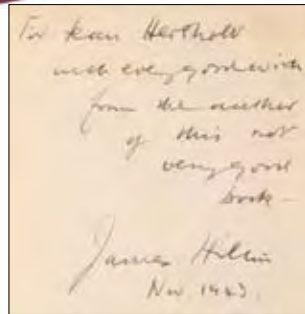 For Jean Hersholt
with every good wish
from the author
of this not
very good
book –
James Hilton
Nov. 1943.